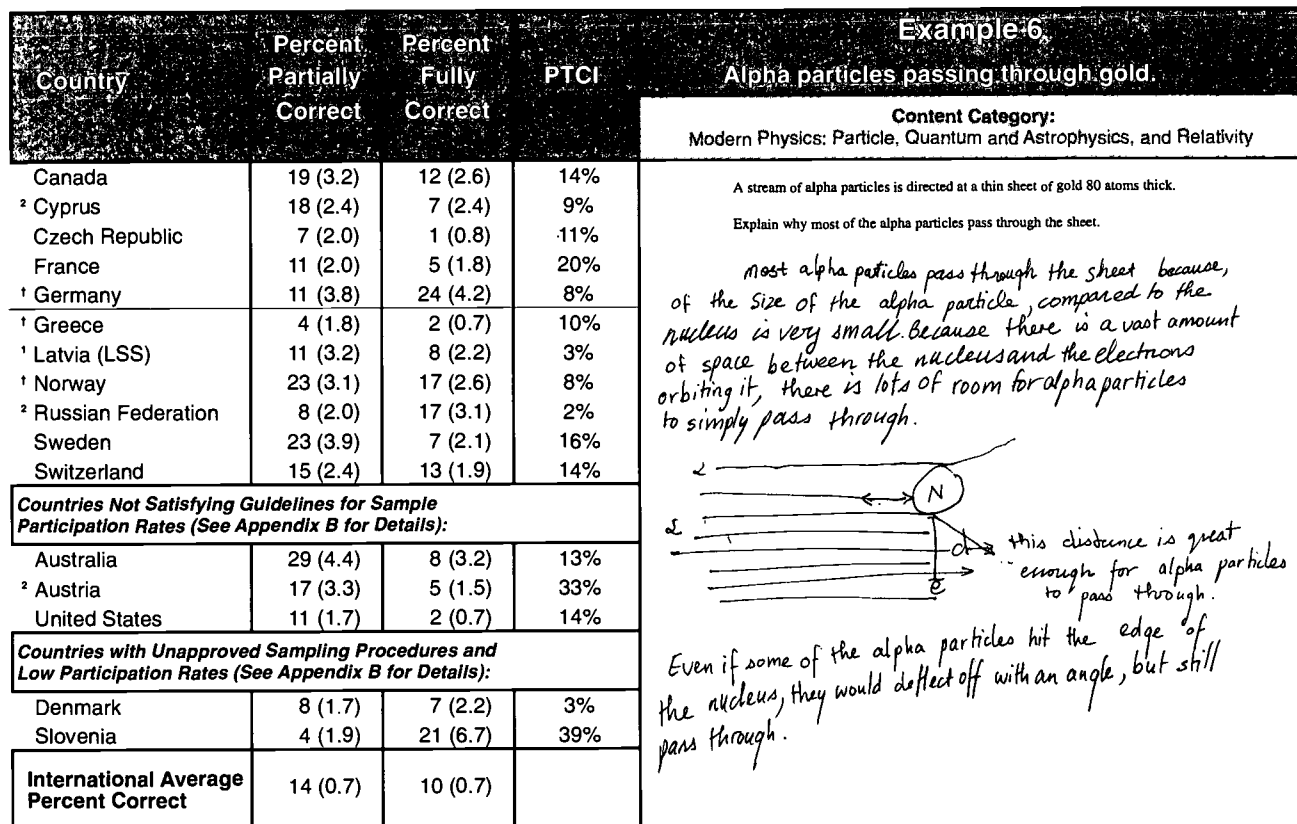 Country
Percent Partially Correct
Percent Fully Correct
PTCI
Example 6
Alpha particles passing through gold.
Content Category:
Modern Physics: Particle, Quantum and Astrophysics, and Relativity
Canada 19 (3.2) 12 (2.6) 14%
² Cyprus 18 (2.4) 7 (2.4) 9%
Czech Republic 7 (2.0) 1 (0.8) 11%
France 11 (2.0) 5 (1.8) 20%
† Germany 11 (3.8) 24 (4.2) 8%
† Greece 4 (1.8) 2 (0.7) 10%
¹ Latvia (LSS) 11 (3.2) 8 (2.2) 3%
† Norway 23 (3.1) 17 (2.6) 8%
² Russian Federation 8 (2.0) 17 (3.1) 2%
Sweden 23 (3.9) 7 (2.1) 16%
Switzerland 15 (2.4) 13 (1.9) 14%
Countries Not Satisfying Guidelines for Sample
Participation Rates (See Appendix B for Details):
Australia 29 (4.4) 8 (3.2) 13%
² Austria 17 (3.3) 5 (1.5) 33%
United States 11 (1.7) 2 (0.7) 14%
Countries with Unapproved Sampling Procedures and
Low Participation Rates (See Appendix B for Details):
Denmark 8 (1.7) 7 (2.2) 3%
Slovenia 4 (1.9) 21 (6.7) 39%
International Average
Percent Correct 14 (0.7) 10 (0.7)
A stream of alpha particles is directed at a thin sheet of gold 80 atoms thick.
Explain why most of the alpha particles pass through the sheet.
Most alpha paticles pass through the sheet because,
of the size of the alpha particle, compared to the
nucleus is very small. Because there is a vast amount
of space between the nucleus and the electrons
orbiting it, there is lots of room for alpha particles
to simply pass through.
α
N
α
d
e
this distance is great
enough for alpha particles
to pass through.
Even if some of the alpha particles hit the edge of
the nucleus, they would deflect off with an angle, but still
pass through.